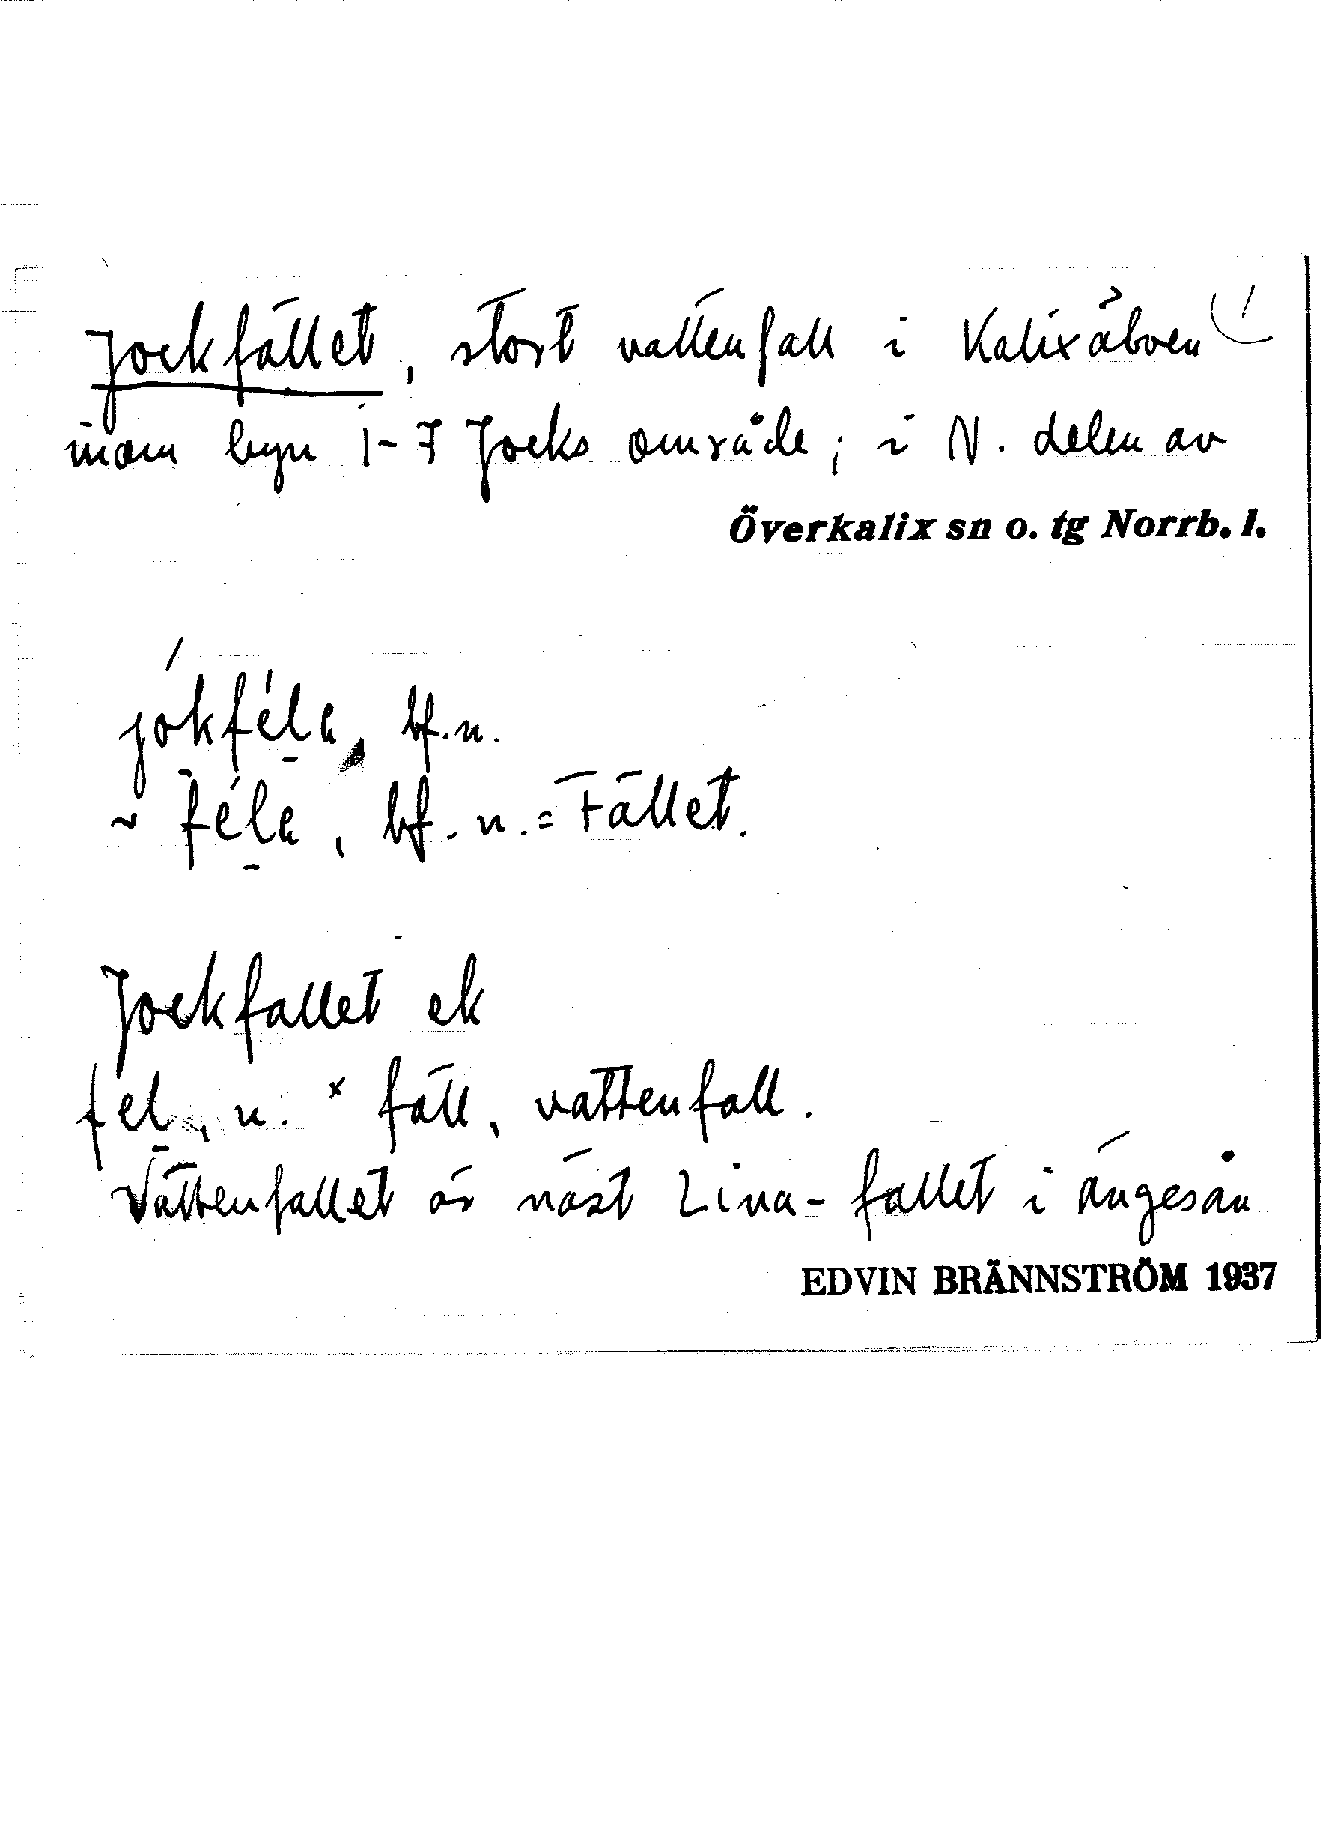 Jockfället, stort vattenfall i Kalixälven (1
inom byn 1-7 Jocks område; i N. delen av
Överkalix sn o. tg Norrb. l.
jókféla, bf.n.
~ féla, bf. n. = Fället.
Jockfallet ek
fel, n. * fäll, vattenfall.
Vattenfallet är näst Lina-fallet i Ängesån
EDVIN BRÄNNSTRÖM 1937